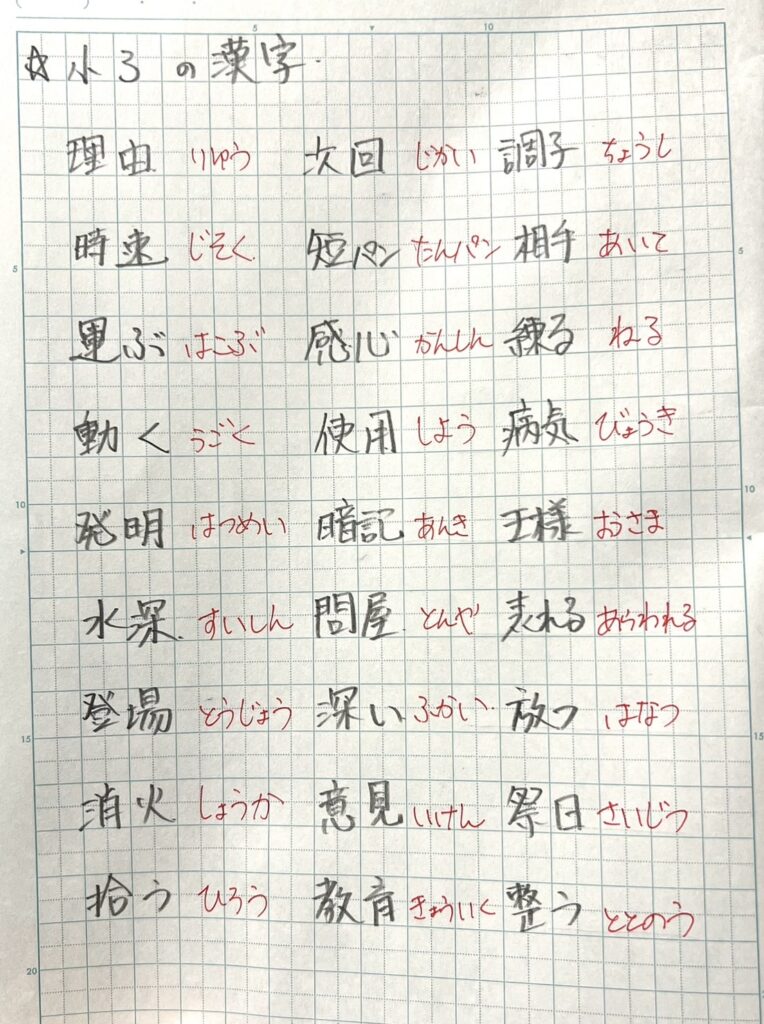 ☆小3の漢字.
理由 りゆう 次回 じかい 調子 ちょうし
時速 じそく 短パン たんパン 相手 あいて
運ぶ はこぶ 感心 かんしん 練る ねる
動く うごく 使用 しよう 病気 びょうき
発明 はつめい 暗記 あんき 王様 おうさま
水深 すいしん 問屋 とんや 表れる あらわれる
登場 とうじょう 深い ふかい 放つ はなつ
消火 しょうか 意見 いけん 祭日 さいじつ
拾う ひろう 教育 きょういく 整う ととのう
5 10
5
10
15
20
5
10
15